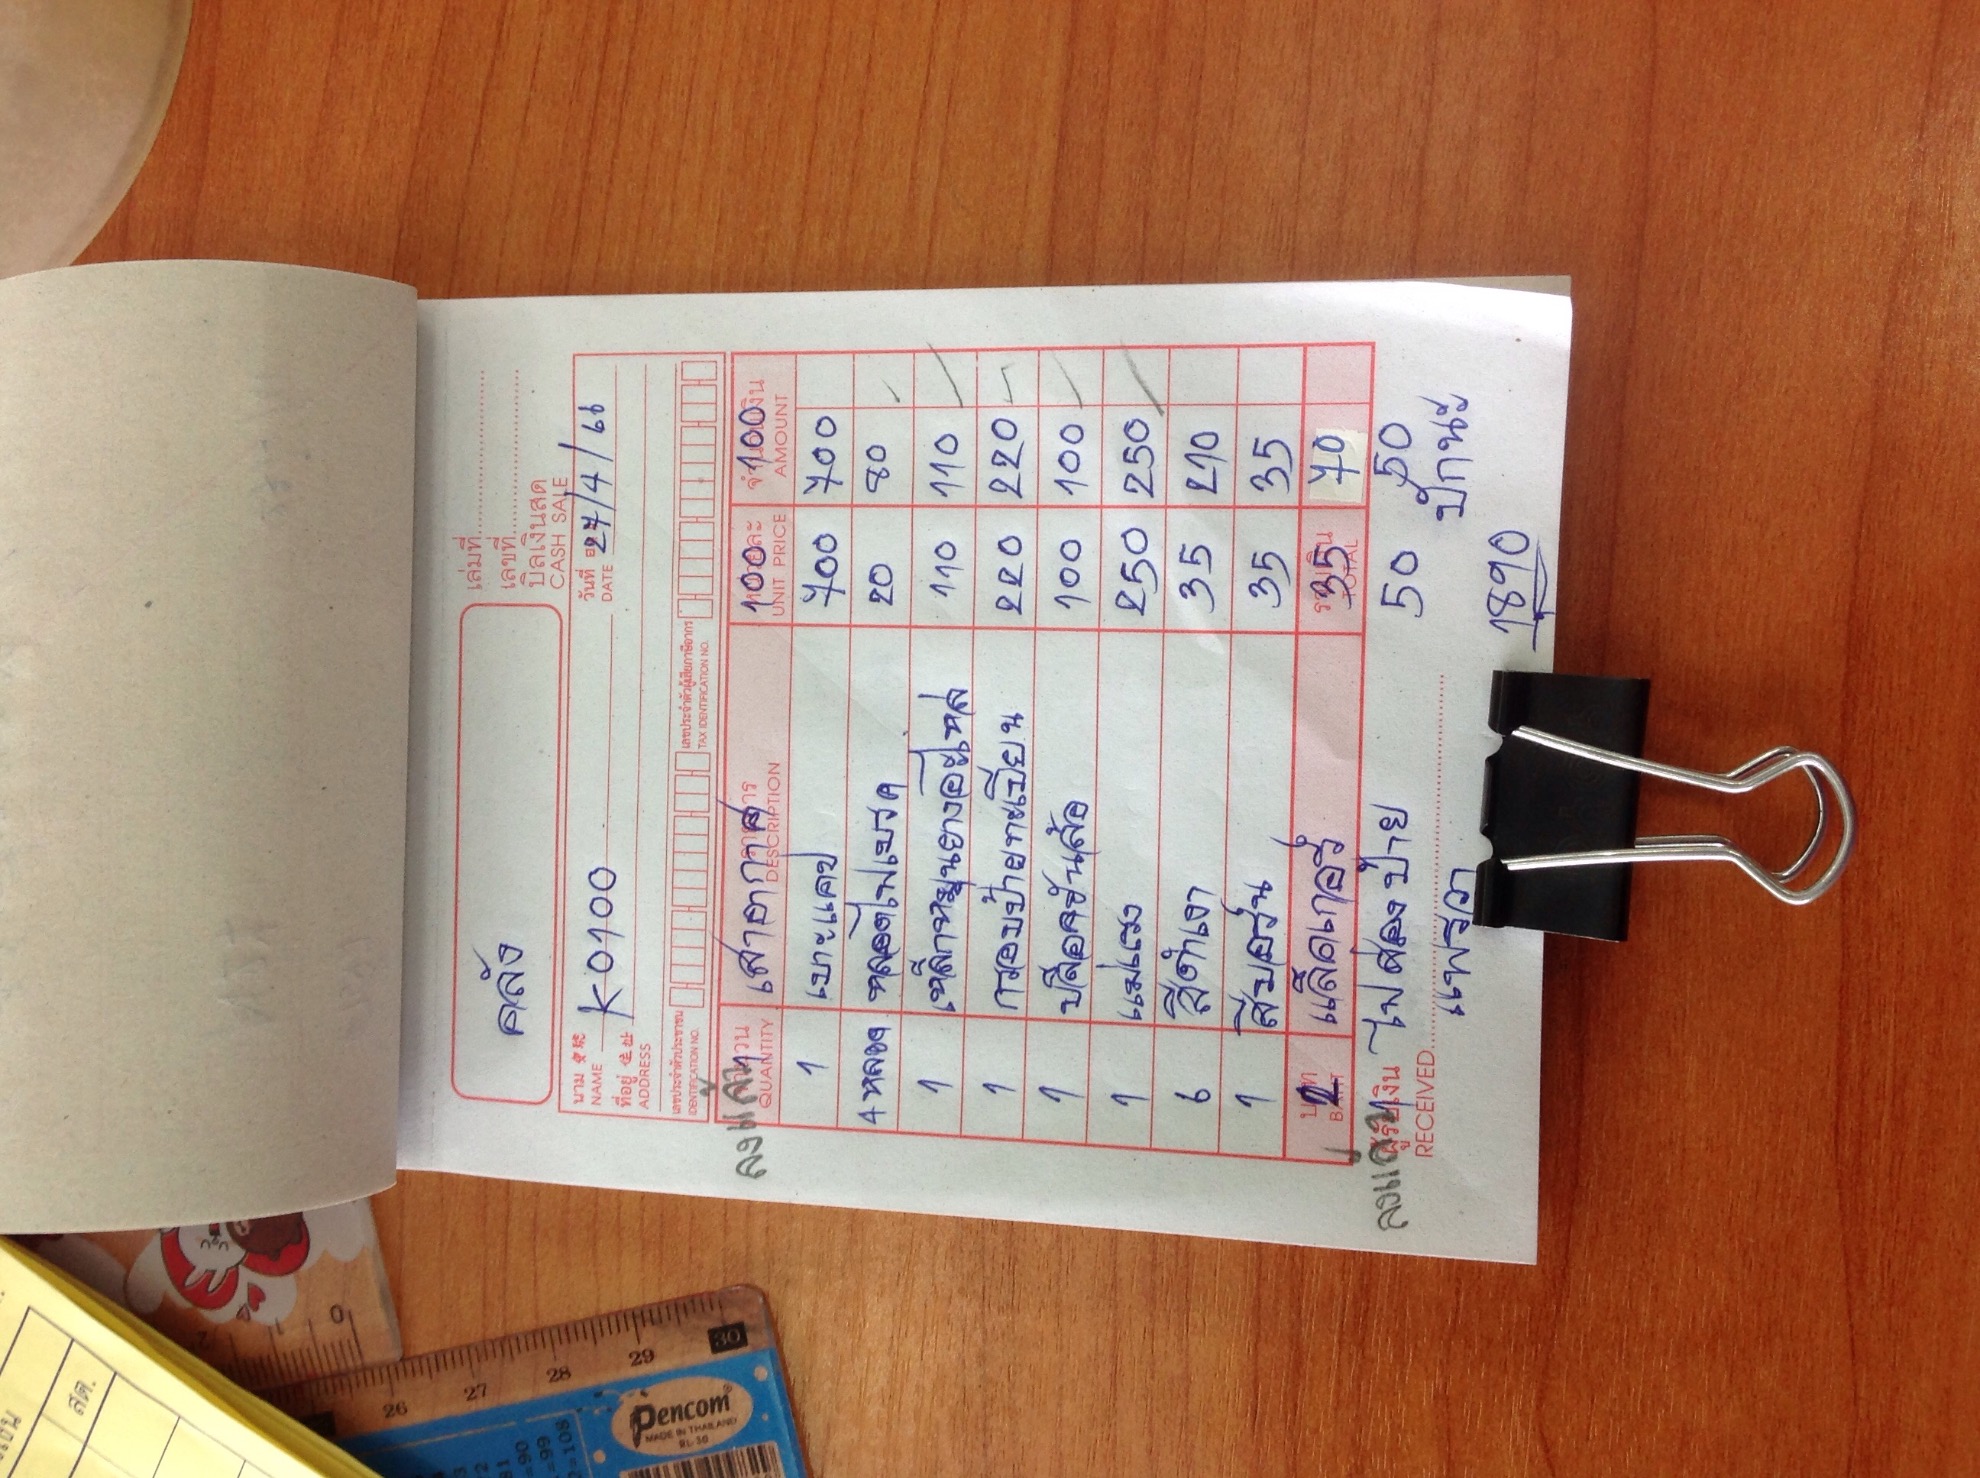 คลัง
เล่มที่
เลขที่
บิลเงินสด
CASH SALE
นาม
NAME K0100
วันที่
DATE 27/4/66
ที่อยู่
ADDRESS
เลขประจำตัวประชาชน
IDENTIFICATION NO.
เลขประจำตัวผู้เสียภาษีอากร
TAX IDENTIFICATION NO.
ลงแล้ว
QUANTITY DESCRIPTION UNIT PRICE AMOUNT
เสาอากาศ 100 100
1 เบาะแคป 700 700
4 หลอด หลอดไฟเบรค 20 80
1 เหล็กหมุนยางอะไหล่ 110 110
1 กรอบป้ายทะเบียน 220 220
1 ปลือคขันล้อ 100 100
1 แม่แรง 250 250
6 สีดำเงา 35 210
1 สีบอร์น 35 35
2 แล็คเกอร์ 35 70
BAHT TOTAL
ลงแล้ว ไฟส่องป้าย 50 50
ผู้รับเงิน
RECEIVED
แพรวา
ปักษ์
1890
สต.
0
26 27 28 29 30
Pencom
MADE IN THAILAND
RL-30
=90
=99
=108